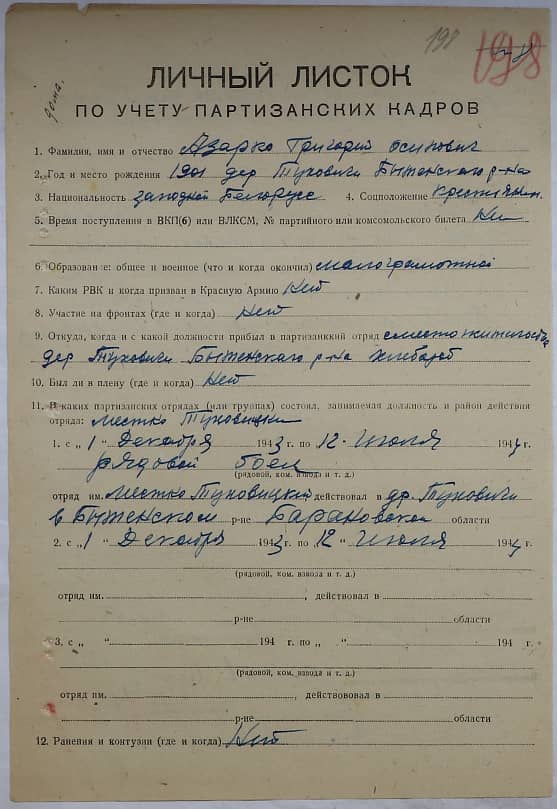 198
198
дома.
ЛИЧНЫЙ ЛИСТОК
ПО УЧЕТУ ПАРТИЗАНСКИХ КАДРОВ
1. Фамилия, имя и отчество Азарко Григорий Осипович
2. Год и место рождения 1901 дер Туховичи Бытенскаго р-на
3. Национальность западной Белорусс 4. Соцположение крестьянин.
5. Время поступления в ВКП(б) или ВЛКСМ, № партийного или комсомольского билета Нет
6. Образование: общее и военное (что и когда окончил) малограмотной
7. Каким РВК и когда призван в Красную Армию Нет
8. Участие на фронтах (где и когда) Нет
9. Откуда, когда и с какой должности прибыл в партизанский отряд сместо жительства
дер Туховичи Бытенскаго р-на хлебороб
10. Был ли в плену (где и когда) Нет
11. В каких партизанских отрядах (или группах) состоял, занимаемая должность и район действия
отряда: местко Туховицки
1. с „1“ Декабря 1943 г. по 12. Июля 1944 г.
рядовой боец
(рядовой, ком. взвода и т. д.)
отряд им. Местко Туховицкий действовал в др. Туховичи
в Бытенском р-не Барановской области
2. с „1“ Декабря 1943 г. по „12“ Июля 1944 г.
(рядовой, ком. взвода и т. д.)
отряд им. , действовал в
р-не области
3. с „ “ 194 г. по „ “ 194 г.
(рядовой, ком. взвода и т. д.)
отряд им. , действововал в
р-не области
12. Ранения и контузии (где и когда) Нет